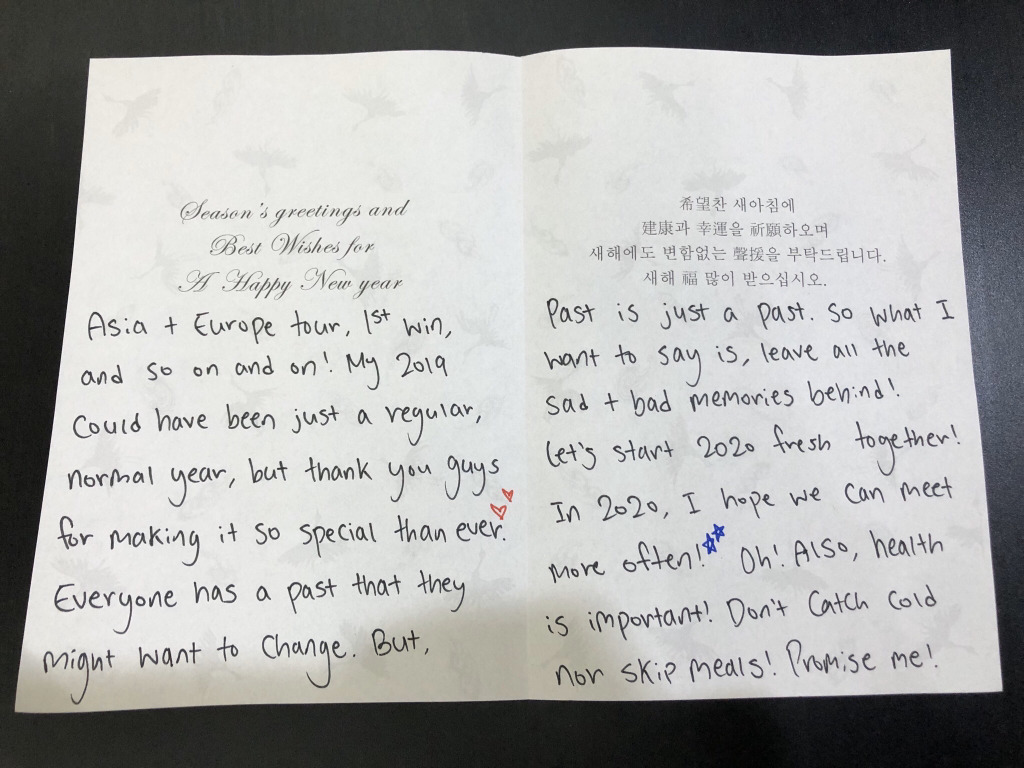 Season's greetings and
Best Wishes for
A Happy New year
Asia + Europe tour, 1st win,
and so on and on! My 2019
Could have been just a regular,
normal year, but thank you guys
for making it so special than ever.
Everyone has a past that they
might want to change. But,
希望찬 새아침에
建康과 幸運을 祈願하오며
새해에도 변함없는 聲援을 부탁드립니다.
새해 福 많이 받으십시오.
Past is just a past. So what I
want to say is, leave all the
sad + bad memories behind!
Let's start 2020 fresh together!
In 2020, I hope we can meet
more often! Oh! Also, health
is important! Don't catch cold
nor skip meals! Promise me!